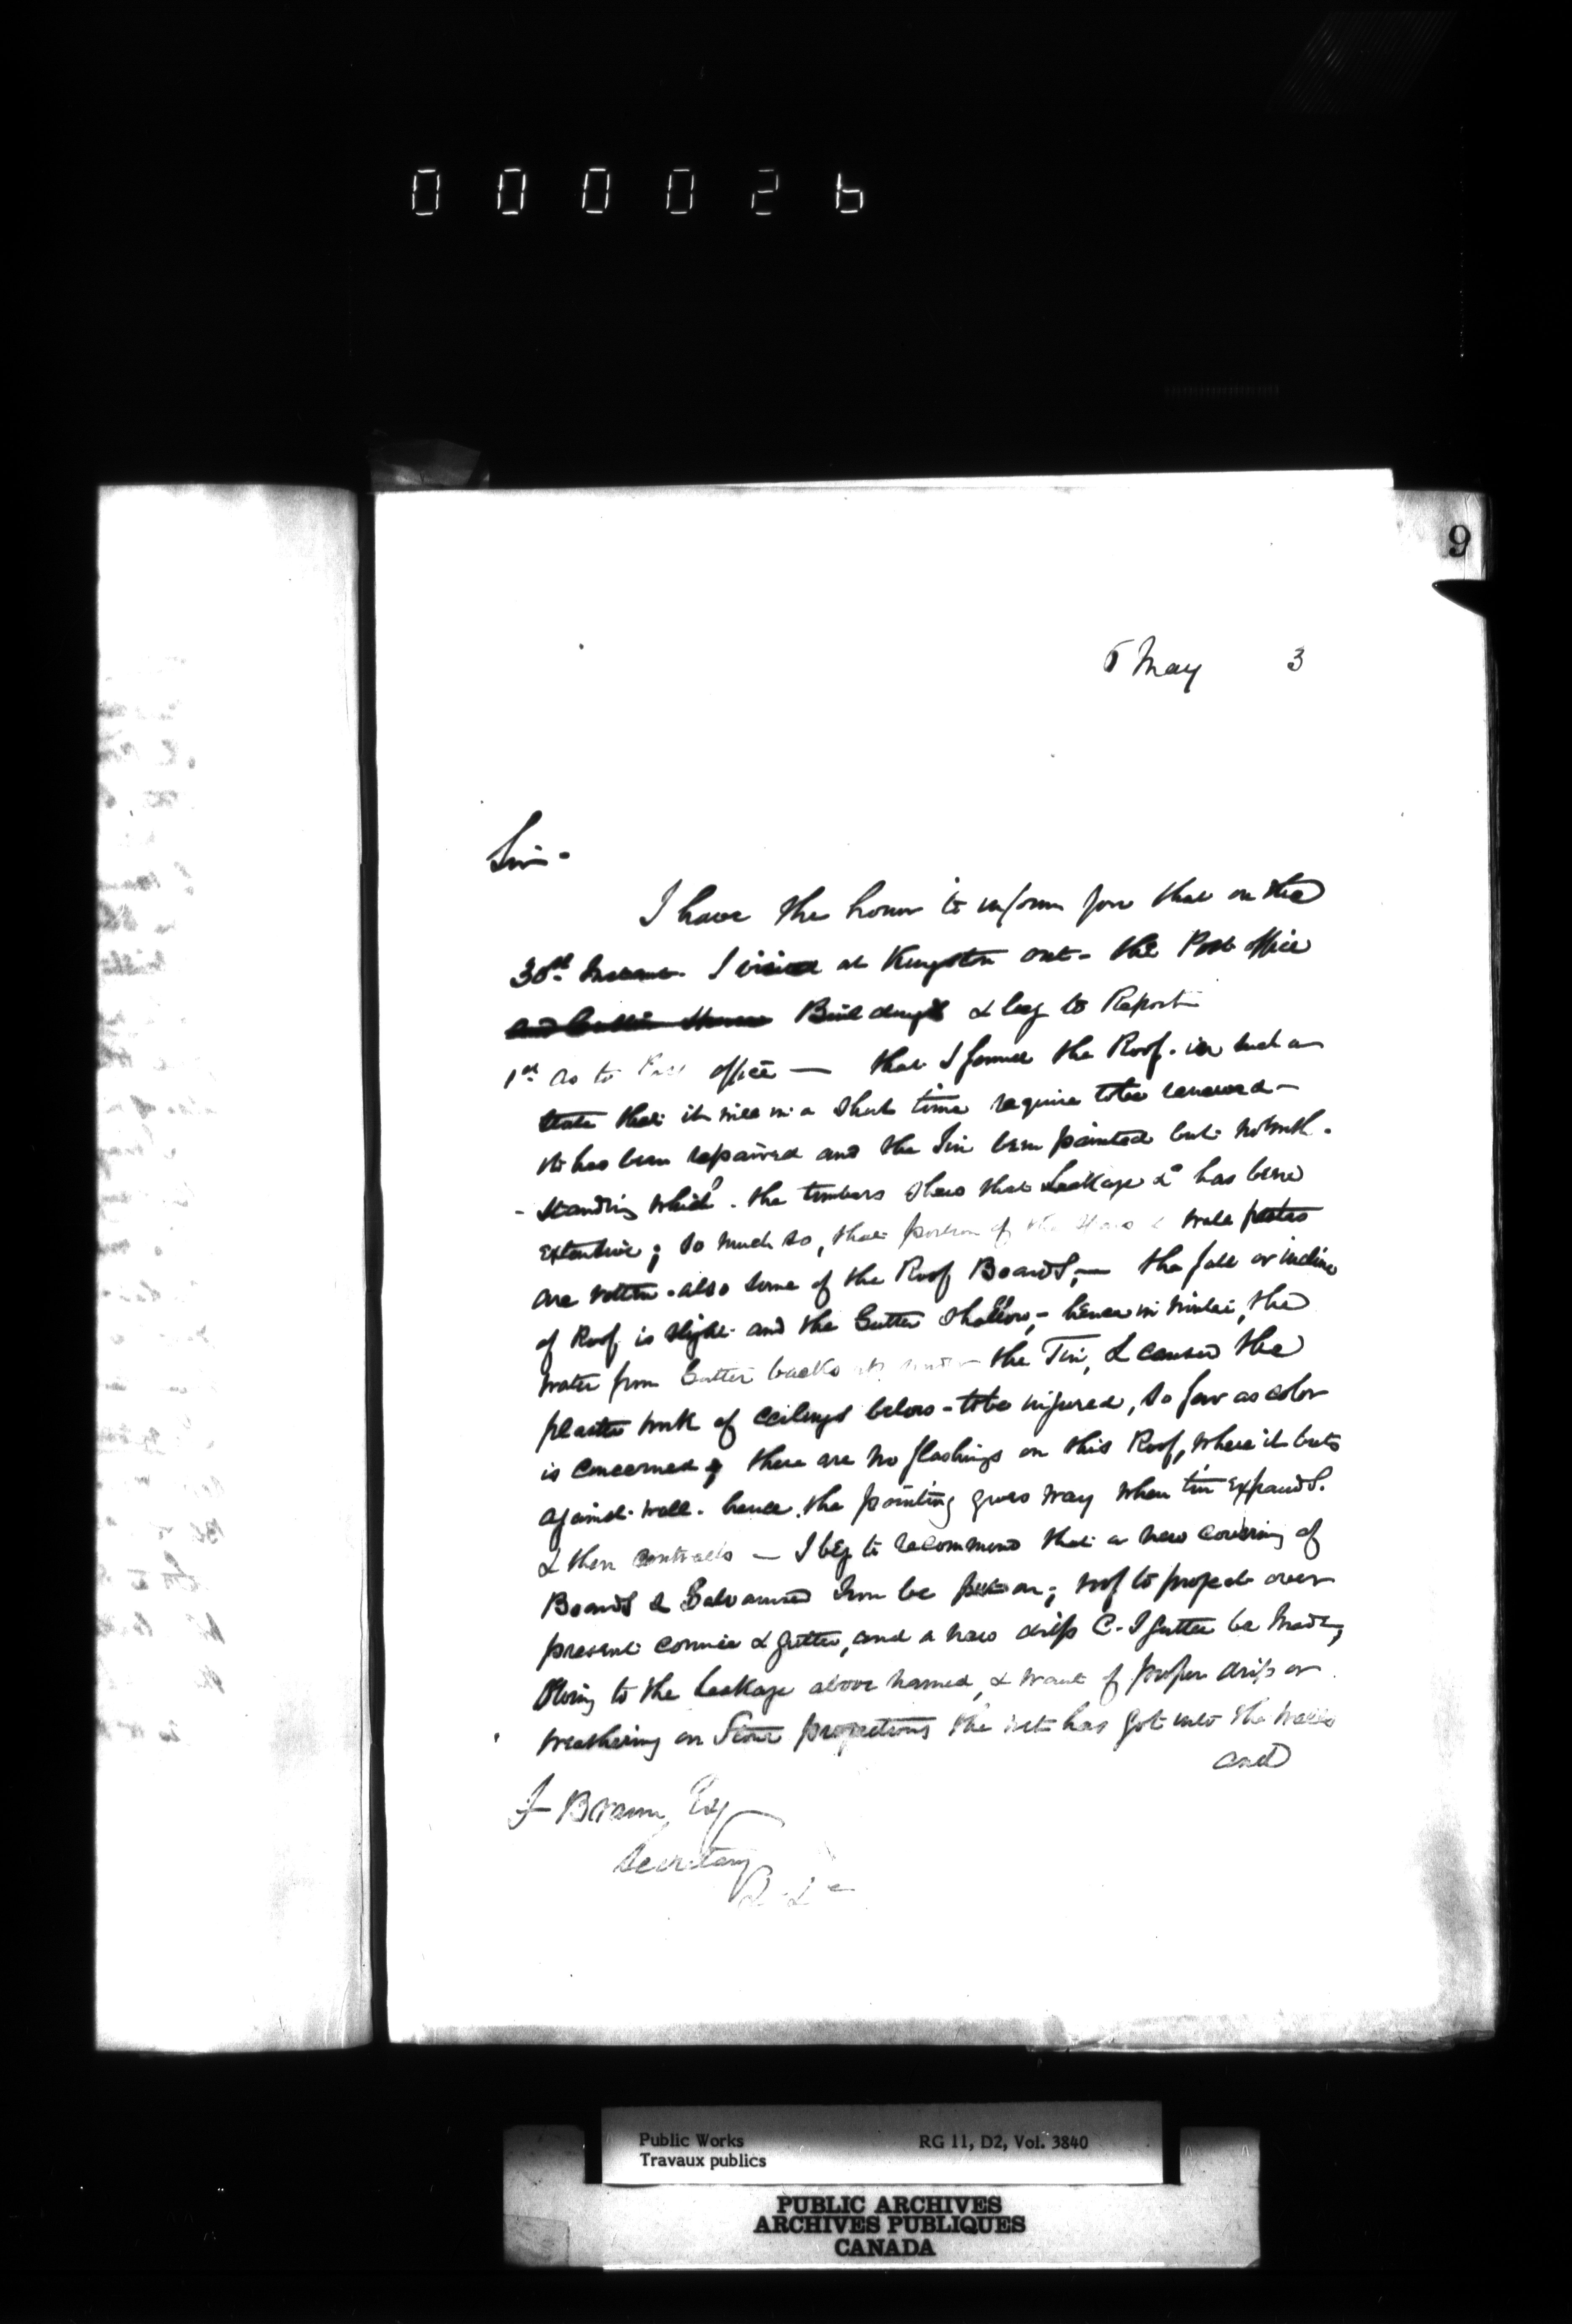 000026
9
6 May 3
Sir -
I have the honor to inform you that on the
30th Instant I visited at Kingston Ont- the Post office
and Custom House Buildings & beg to Report
1st as to Post office — that I found the Roof in such a
state that it will in a short time require to be renewed -
It has been repaired and the Tin been painted but notwith-
- standing which the timbers shew that Leakage &c has been
extensive; so much so, that portion of the & wall plates
are rotten - also some of the Roof Boards; — the fall or incline
of Roof is slight and the Gutter shallow, - hence in winter, the
water from Gutter backs the Tin, & caused the
plaster work of ceilings below - to be injured, so far as color
is concerned; there are no flashings on this Roof, where it buts
against wall. hence the pointing gives way when tin expands.
& then contracts — I beg to recommend that a new covering of
Boards & Galvanized Iron be put on; roof to project over
present cornice & gutter, and a new C. I gutter be made,
Owing to the Leakage above named, & want of proper drips or
weathering on Stone projections the wet has got into the walls
and
F Braun, Esq
Secretary
Public Works
Travaux publics
RG 11, D2, Vol. 3840
PUBLIC ARCHIVES
ARCHIVES PUBLIQUES
CANADA